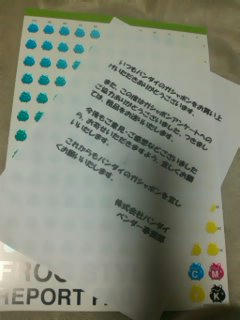 いつもバンダイのガシャポンをお買い上
げいただきありがとうございます。
また、この度はガシャポンアンケートへの
ご協力ありがとうございました。つきまし
ては、粗品をお送りいたします。
今後もご意見・ご感想などございました
ら、お寄せいただきますよう、宜しくお願
いいたします。
これからもバンダイのガシャポンを宜し
くお願いいたします。
株式会社バンダイ
ベンダー事業部
FROG
REPORT
C
M
Y
K